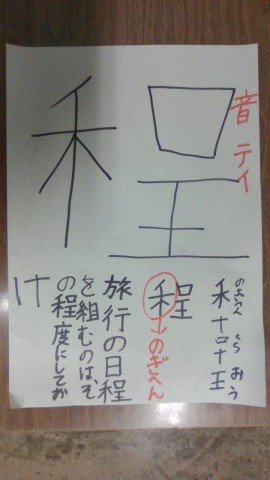 程
音 テイ
のぎへん くち おう
禾+口+王
程→のぎへん
旅行の日程
を組むのは、そ
の程度にしてお
け